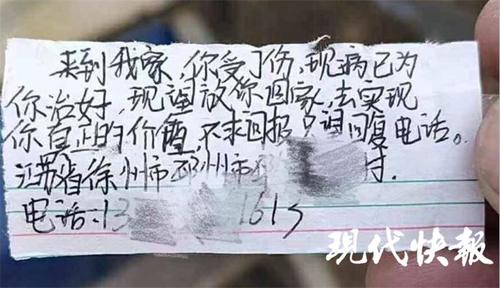 来到我家,你受了伤,现病已为
你治好,现望放你回家,去实现
你真正的价值,不求回报只请回复电话。
江苏省徐州市邳州市 村。
电话:13 1615
现代快報